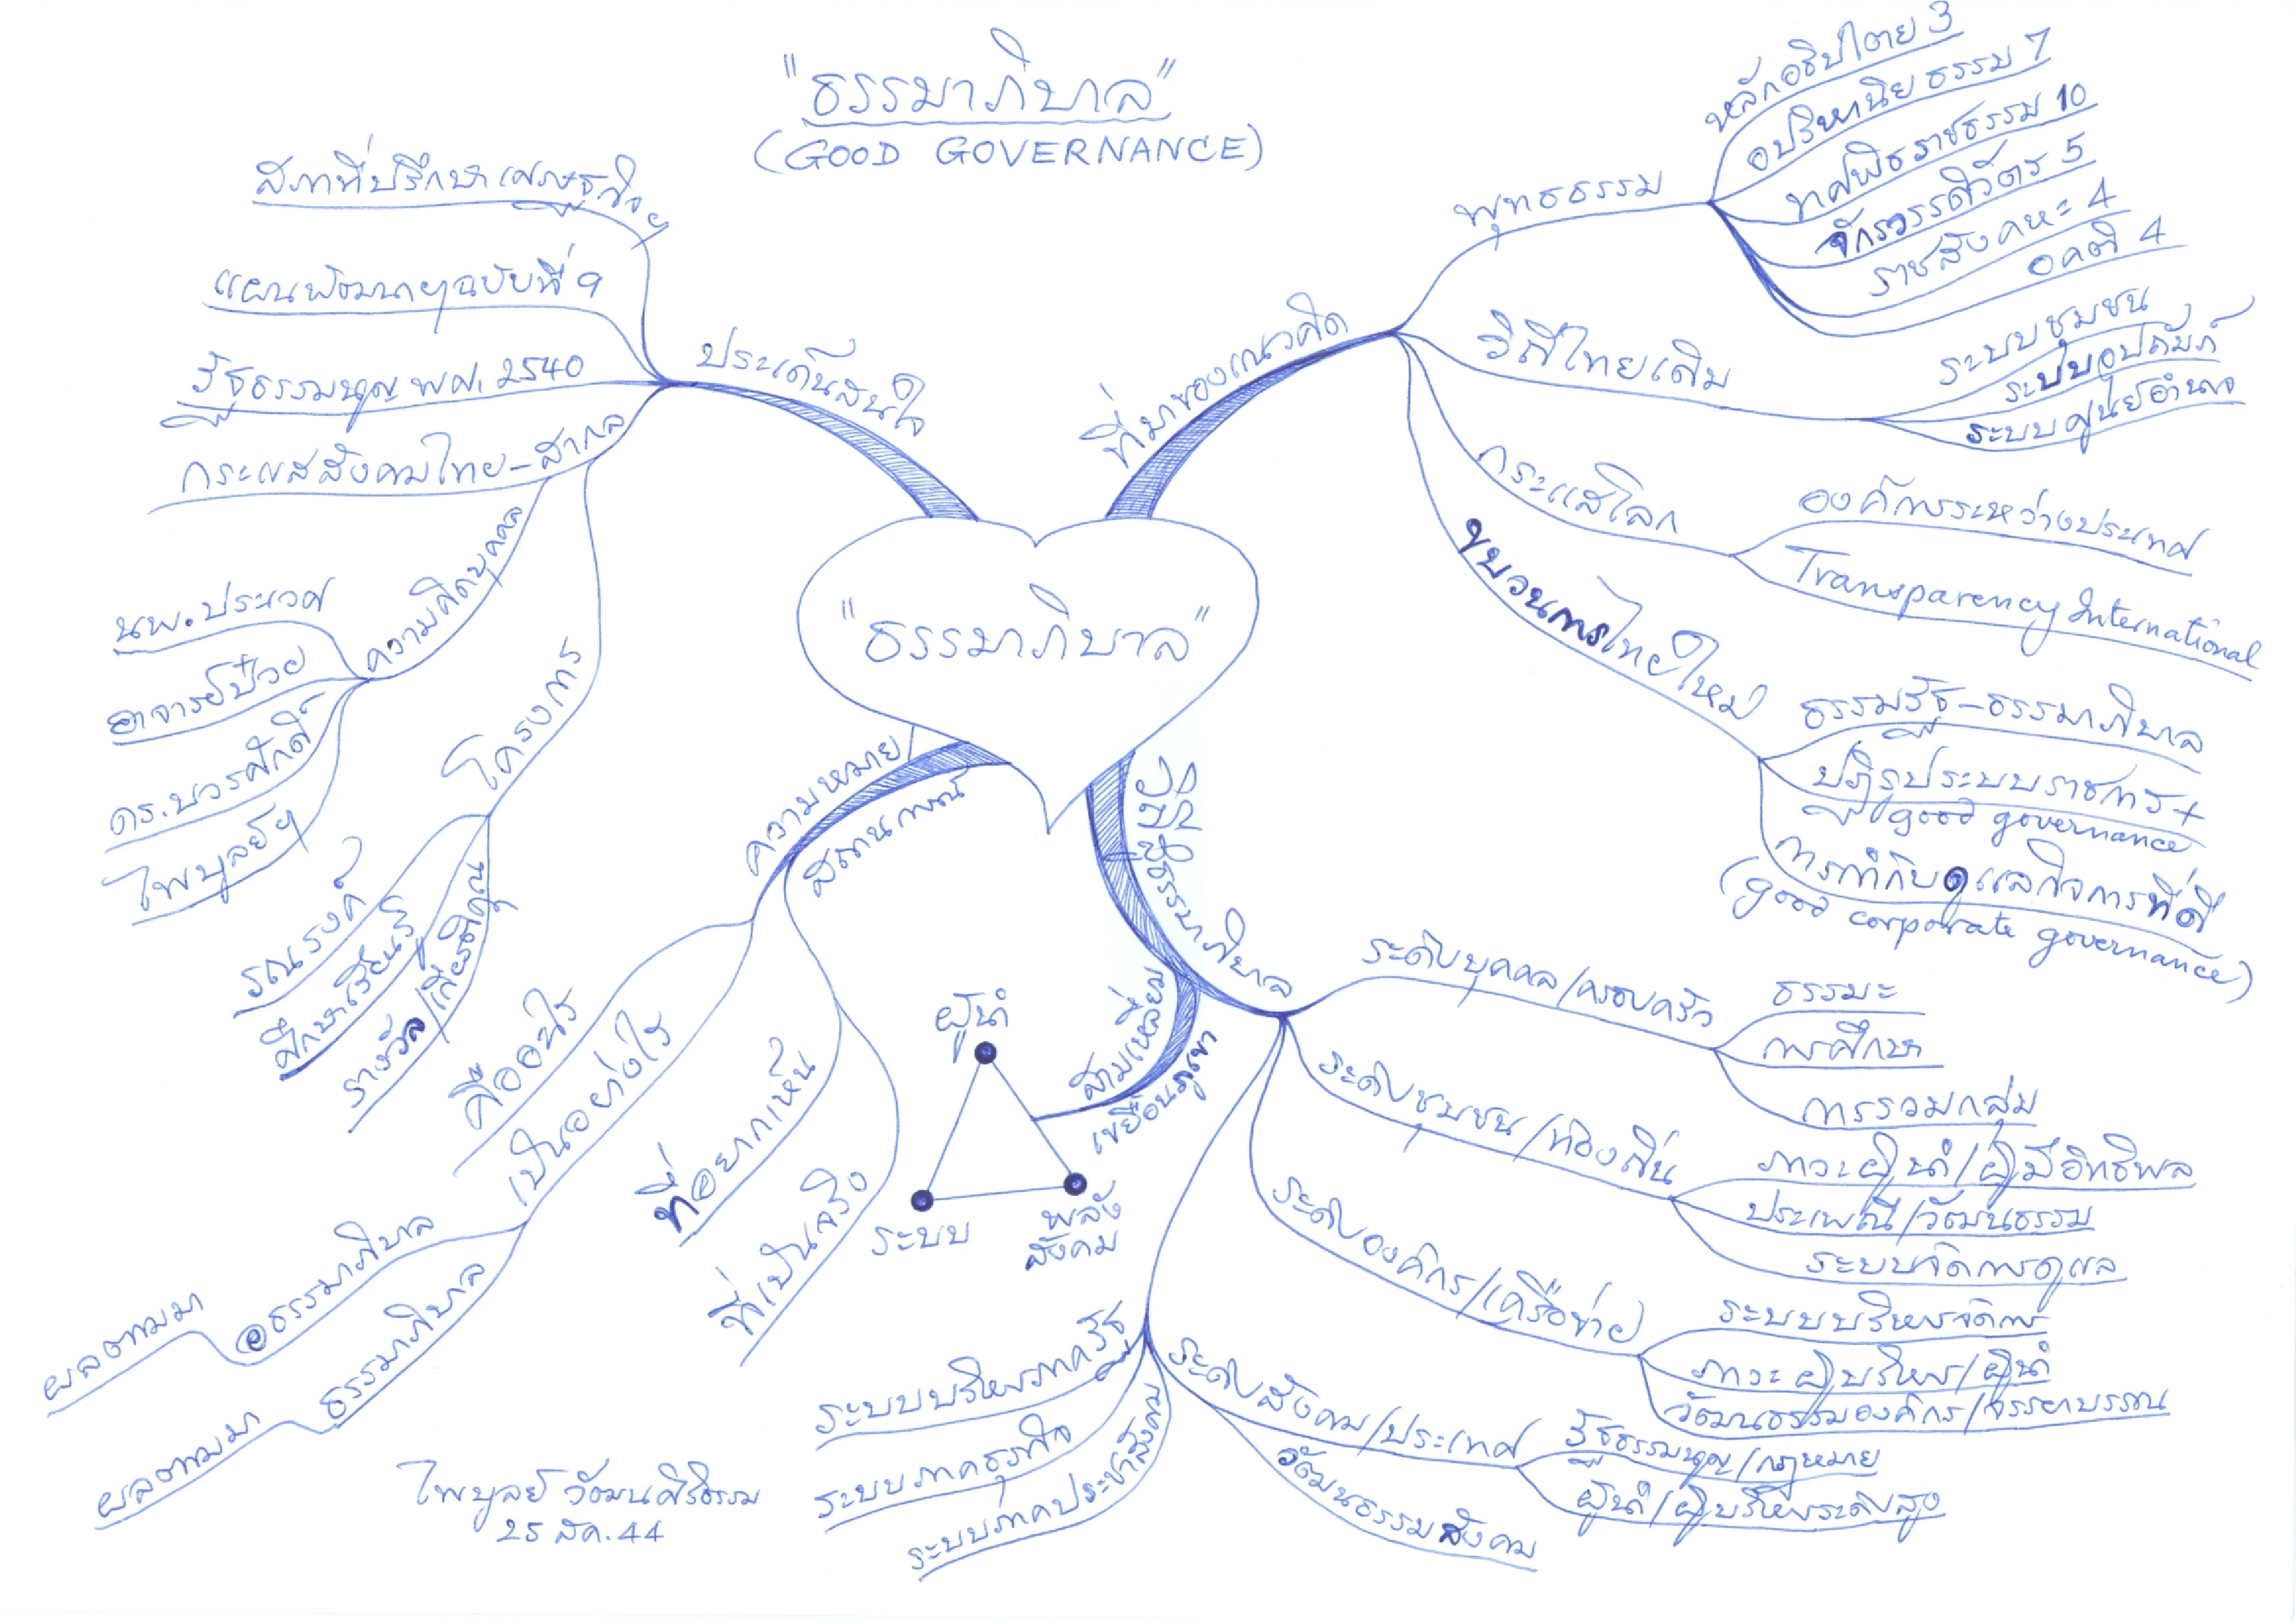 "ธรรมาภิบาล"
(GOOD GOVERNANCE)
"ธรรมาภิบาล"
ที่มาของแนวคิด
พุทธธรรม
หลักอธิปไตย 3
อปริหานิยธรรม 7
ทศพิธราชธรรม 10
จักรวรรดิวัตร 5
ราชสังคหะ 4
อคติ 4
วิถีไทยเดิม
ระบบชุมชน
ระบบอุปถัมภ์
ระบบศูนย์อำนาจ
กระแสโลก
องค์การระหว่างประเทศ
Transparency International
ขบวนการไทยใหม่
ธรรมรัฐ-ธรรมาภิบาล
ปฏิรูประบบราชการ +
good governance
การกำกับดูแลกิจการที่ดี
(good corporate governance)
ธรรมาภิบาล
ระดับบุคคล/ครอบครัว
ธรรมะ
การศึกษา
การรวมกลุ่ม
ระดับชุมชน/ท้องถิ่น
ภาวะผู้นำ/ผู้มีอิทธิพล
ประเพณี/วัฒนธรรม
ระบบจัดการดูแล
ระดับองค์กร/เครือข่าย
ระบบบริหารจัดการ
ภาวะผู้บริหาร/ผู้นำ
วัฒนธรรมองค์กร/จรรยาบรรณ
ระดับสังคม/ประเทศ
รัฐธรรมนูญ/กฎหมาย
ผู้นำ/ผู้บริหารระดับสูง
วัฒนธรรมสังคม
ระบบบริหารภาครัฐ
ระบบภาคธุรกิจ
ระบบภาคประชาสังคม
สามเหลี่ยม
เขยื้อนภูเขา
ผู้นำ
ระบบ
พลัง
สังคม
ความหมาย/
สถานการณ์
คืออะไร
เป็นอย่างไร
อธรรมาภิบาล
ผลตามมา
ธรรมาภิบาล
ผลตามมา
ที่อยากเห็น
ที่เป็นจริง
ประเด็นสนใจ
สภาที่ปรึกษาเศรษฐกิจฯ
แผนพัฒนาฯฉบับที่ 9
รัฐธรรมนูญ พศ. 2540
กระแสสังคมไทย-สากล
ความคิดบุคคล
นพ.ประเวศ
อาจารย์ป๋วย
ดร.บวรศักดิ์
ไพบูลย์ฯ
โครงการ
รณรงค์
ศึกษาเรียนรู้
รางวัล/เกียรติคุณ
ไพบูลย์ วัฒนศิริธรรม
25 สค. 44